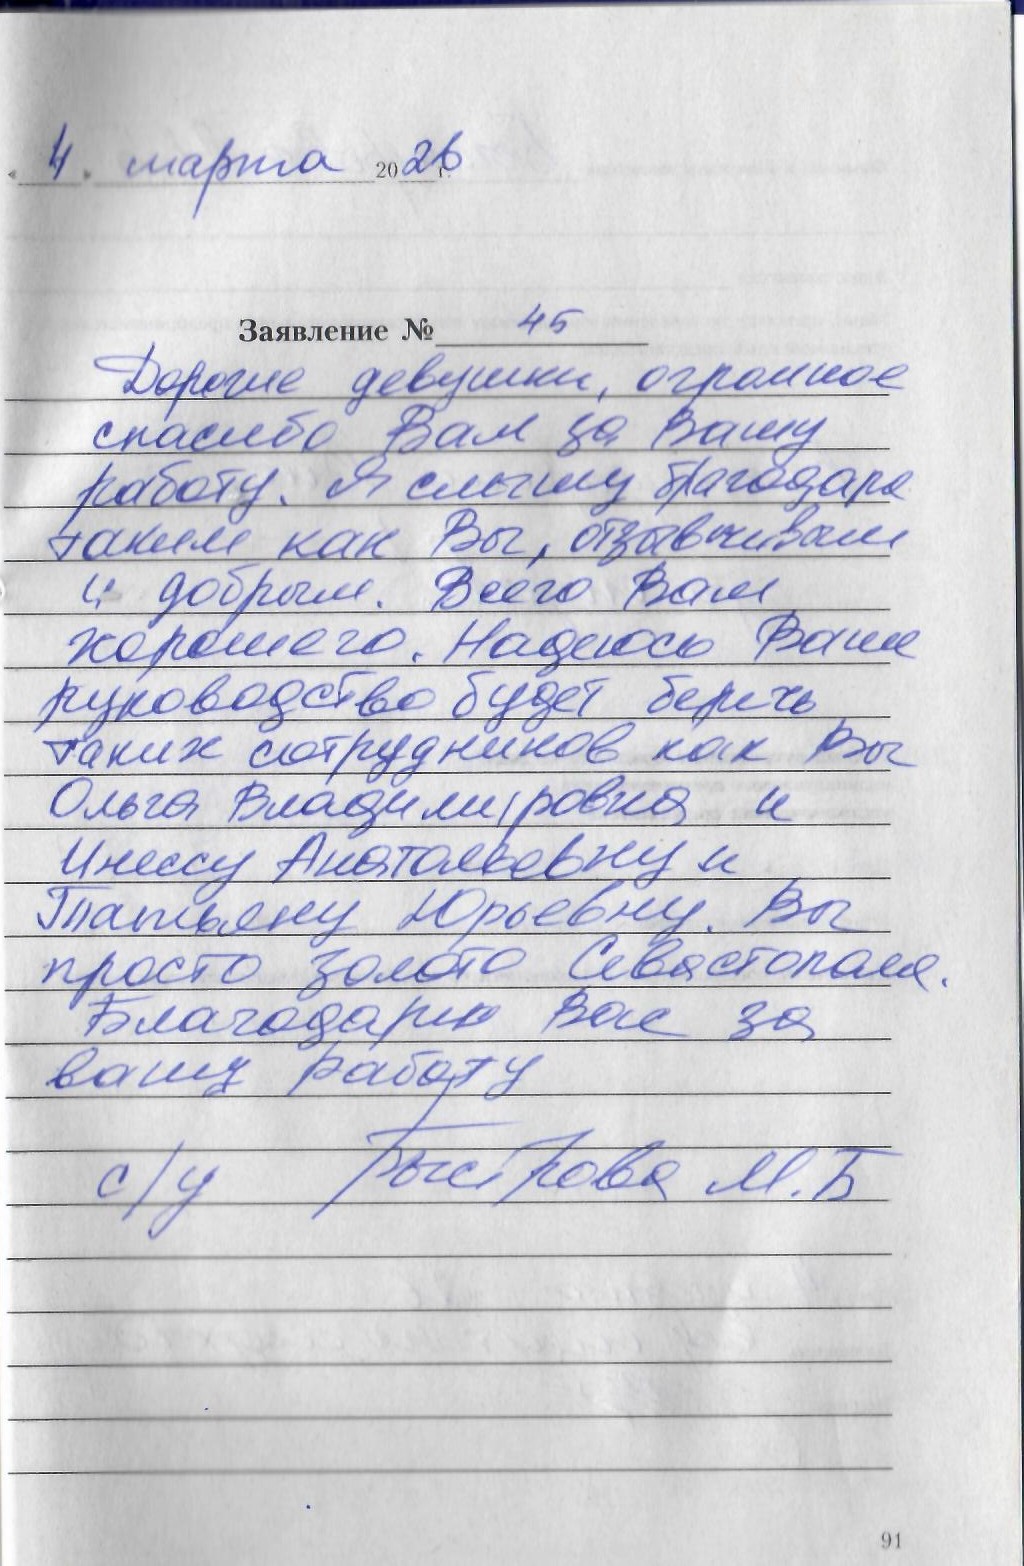 « 4 » марта 2026 г.
Заявление № 45
Дорогие девушки, огромное
спасибо Вам за Вашу
работу. Я слышу благодаря
таким как Вы, отзывчивым
и добрым. Всего Вам
хорошего. Надеюсь Ваше
руководство будет беречь
таких сотрудников как Вы
Ольга Владимировна и
Инессу Анатольевну и
Татьяну Юрьевну. Вы
просто золото Севастополя.
Благодарю Вас за
вашу работу
с/у Быстрова М.Б
91